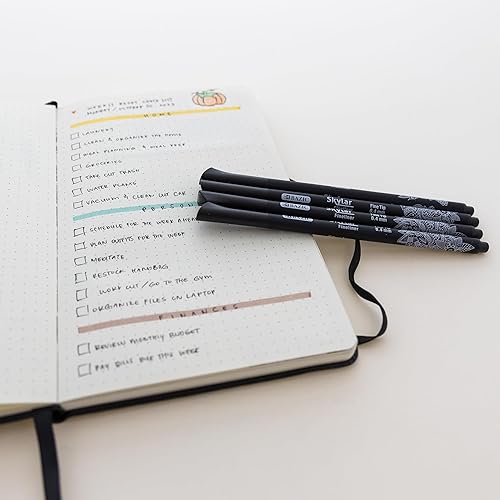 WEEKLY RESET CHECKLIST
MONDAY / OCTOBER 2023
HOME
LAUNDRY
CLEAN & ORGANIZE THE HOUSE
MEAL PLANNING & MEAL PREP
GROCERIES
TAKE OUT TRASH
WATER PLANTS
VACUUM & CLEAN OUT CAR
PERSONAL
SCHEDULE FOR THE WEEK AHEAD
PLAN OUTFITS FOR THE WEEK
MEDITATE
RESTOCK HANDBAG
WORK OUT / GO TO THE GYM
ORGANIZE FILES ON LAPTOP
FINANCES
REVIEW MONTHLY BUDGET
PAY BILLS DUE THIS WEEK
BAZIC Skylar FineTip
Fineliner 0.4 mm
Fineliner 0.4 mm